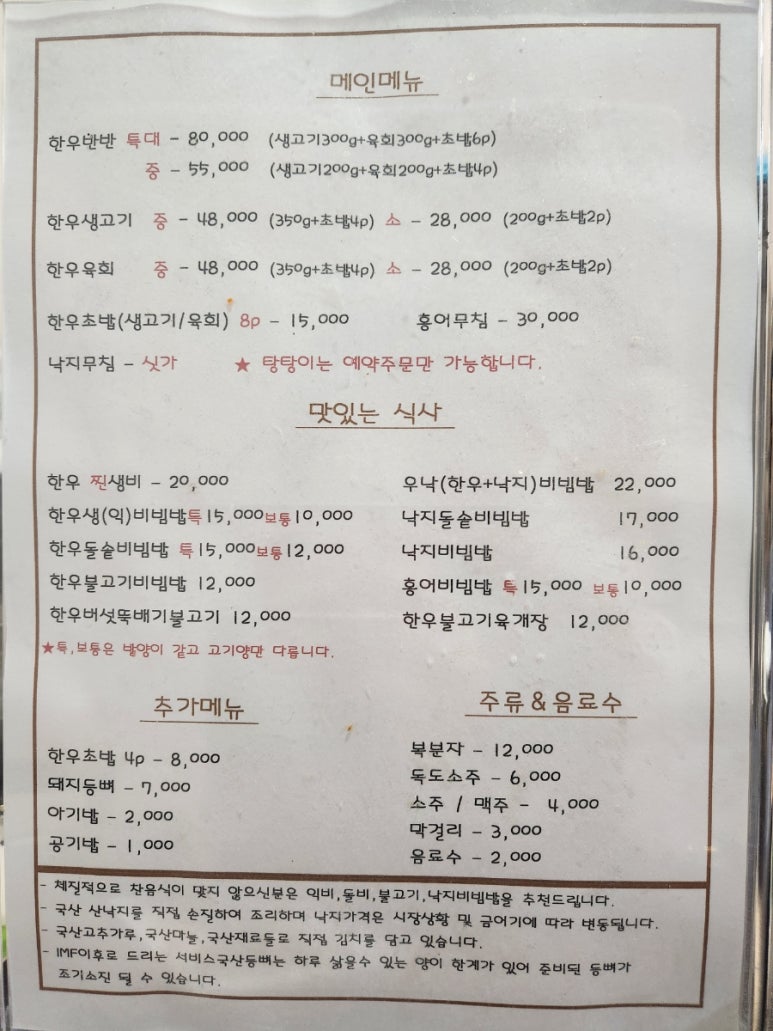 메인메뉴
한우반반 특대 - 80,000 (생고기300g+육회300g+초밥6p)
중 - 55,000 (생고기200g+육회200g+초밥4p)
한우생고기 중 - 48,000 (350g+초밥4p) 소 - 28,000 (200g+초밥2p)
한우육회 중 - 48,000 (350g+초밥4p) 소 - 28,000 (200g+초밥2p)
한우초밥(생고기/육회) 8p - 15,000 홍어무침 - 30,000
낙지무침 - 싯가 ★ 탕탕이는 예약주문만 가능합니다.
맛있는 식사
한우 찐생비 - 20,000
한우생(익)비빔밥특15,000보통10,000
한우돌솥비빔밥 특15,000보통12,000
한우불고기비빔밥 12,000
한우버섯뚝배기불고기 12,000
★특,보통은 밥양이 같고 고기양만 다릅니다.
우낙(한우+낙지)비빔밥 22,000
낙지돌솥비빔밥 17,000
낙지비빔밥 16,000
홍어비빔밥 특15,000 보통10,000
한우불고기육개장 12,000
추가메뉴
한우초밥 4p - 8,000
돼지등뼈 - 7,000
아기밥 - 2,000
공기밥 - 1,000
주류&음료수
복분자 - 12,000
독도소주 - 6,000
소주 / 맥주 - 4,000
막걸리 - 3,000
음료수 - 2,000
- 체질적으로 찬음식이 맞지 않으신분은 익비,돌비,불고기,낙지비빔밥을 추천드립니다.
- 국산 산낙지를 직접 손질하여 조리하며 낙지가격은 시장상황 및 금어기에 따라 변동됩니다.
- 국산고추가루,국산마늘,국산재료들로 직접 김치를 담고 있습니다.
- IMF이후로 드리는 서비스국산등뼈는 하루 삶을수 있는 양이 한계가 있어 준비된 등뼈가
조기소진 될 수 있습니다.